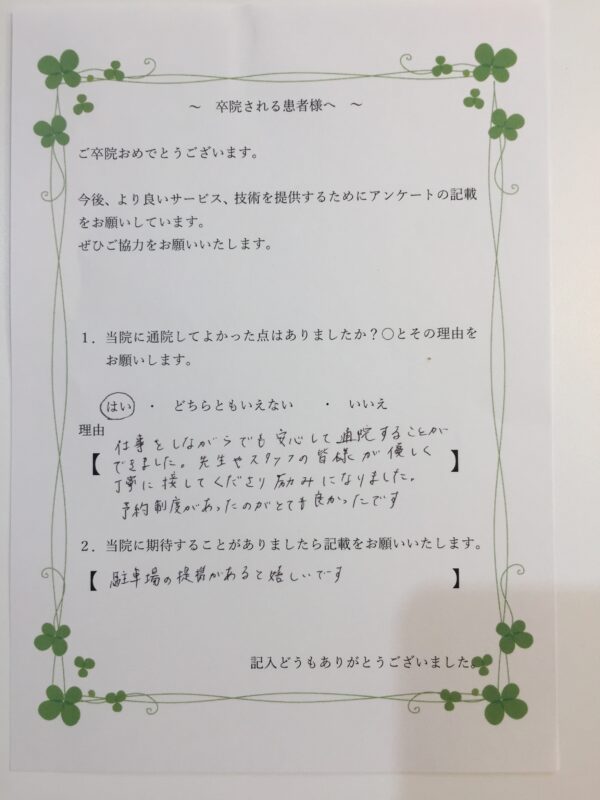 ～　卒院される患者様へ　～
ご卒院おめでとうございます。
今後、より良いサービス、技術を提供するためにアンケートの記載
をお願いしています。
ぜひご協力をお願いいたします。
1．当院に通院してよかった点はありましたか？〇とその理由を
お願いします。
はい　・　どちらともいえない　・　いいえ
理由
仕事をしながらでも安心して通院することが
【できました。先生やスタッフの皆様が優しく】
丁寧に接してくださり励みになりました。
予約制度があったのがとても良かったです
2．当院に期待することがありましたら記載をお願いいたします。
【駐車場の提携があると嬉しいです】
記入どうもありがとうございました。